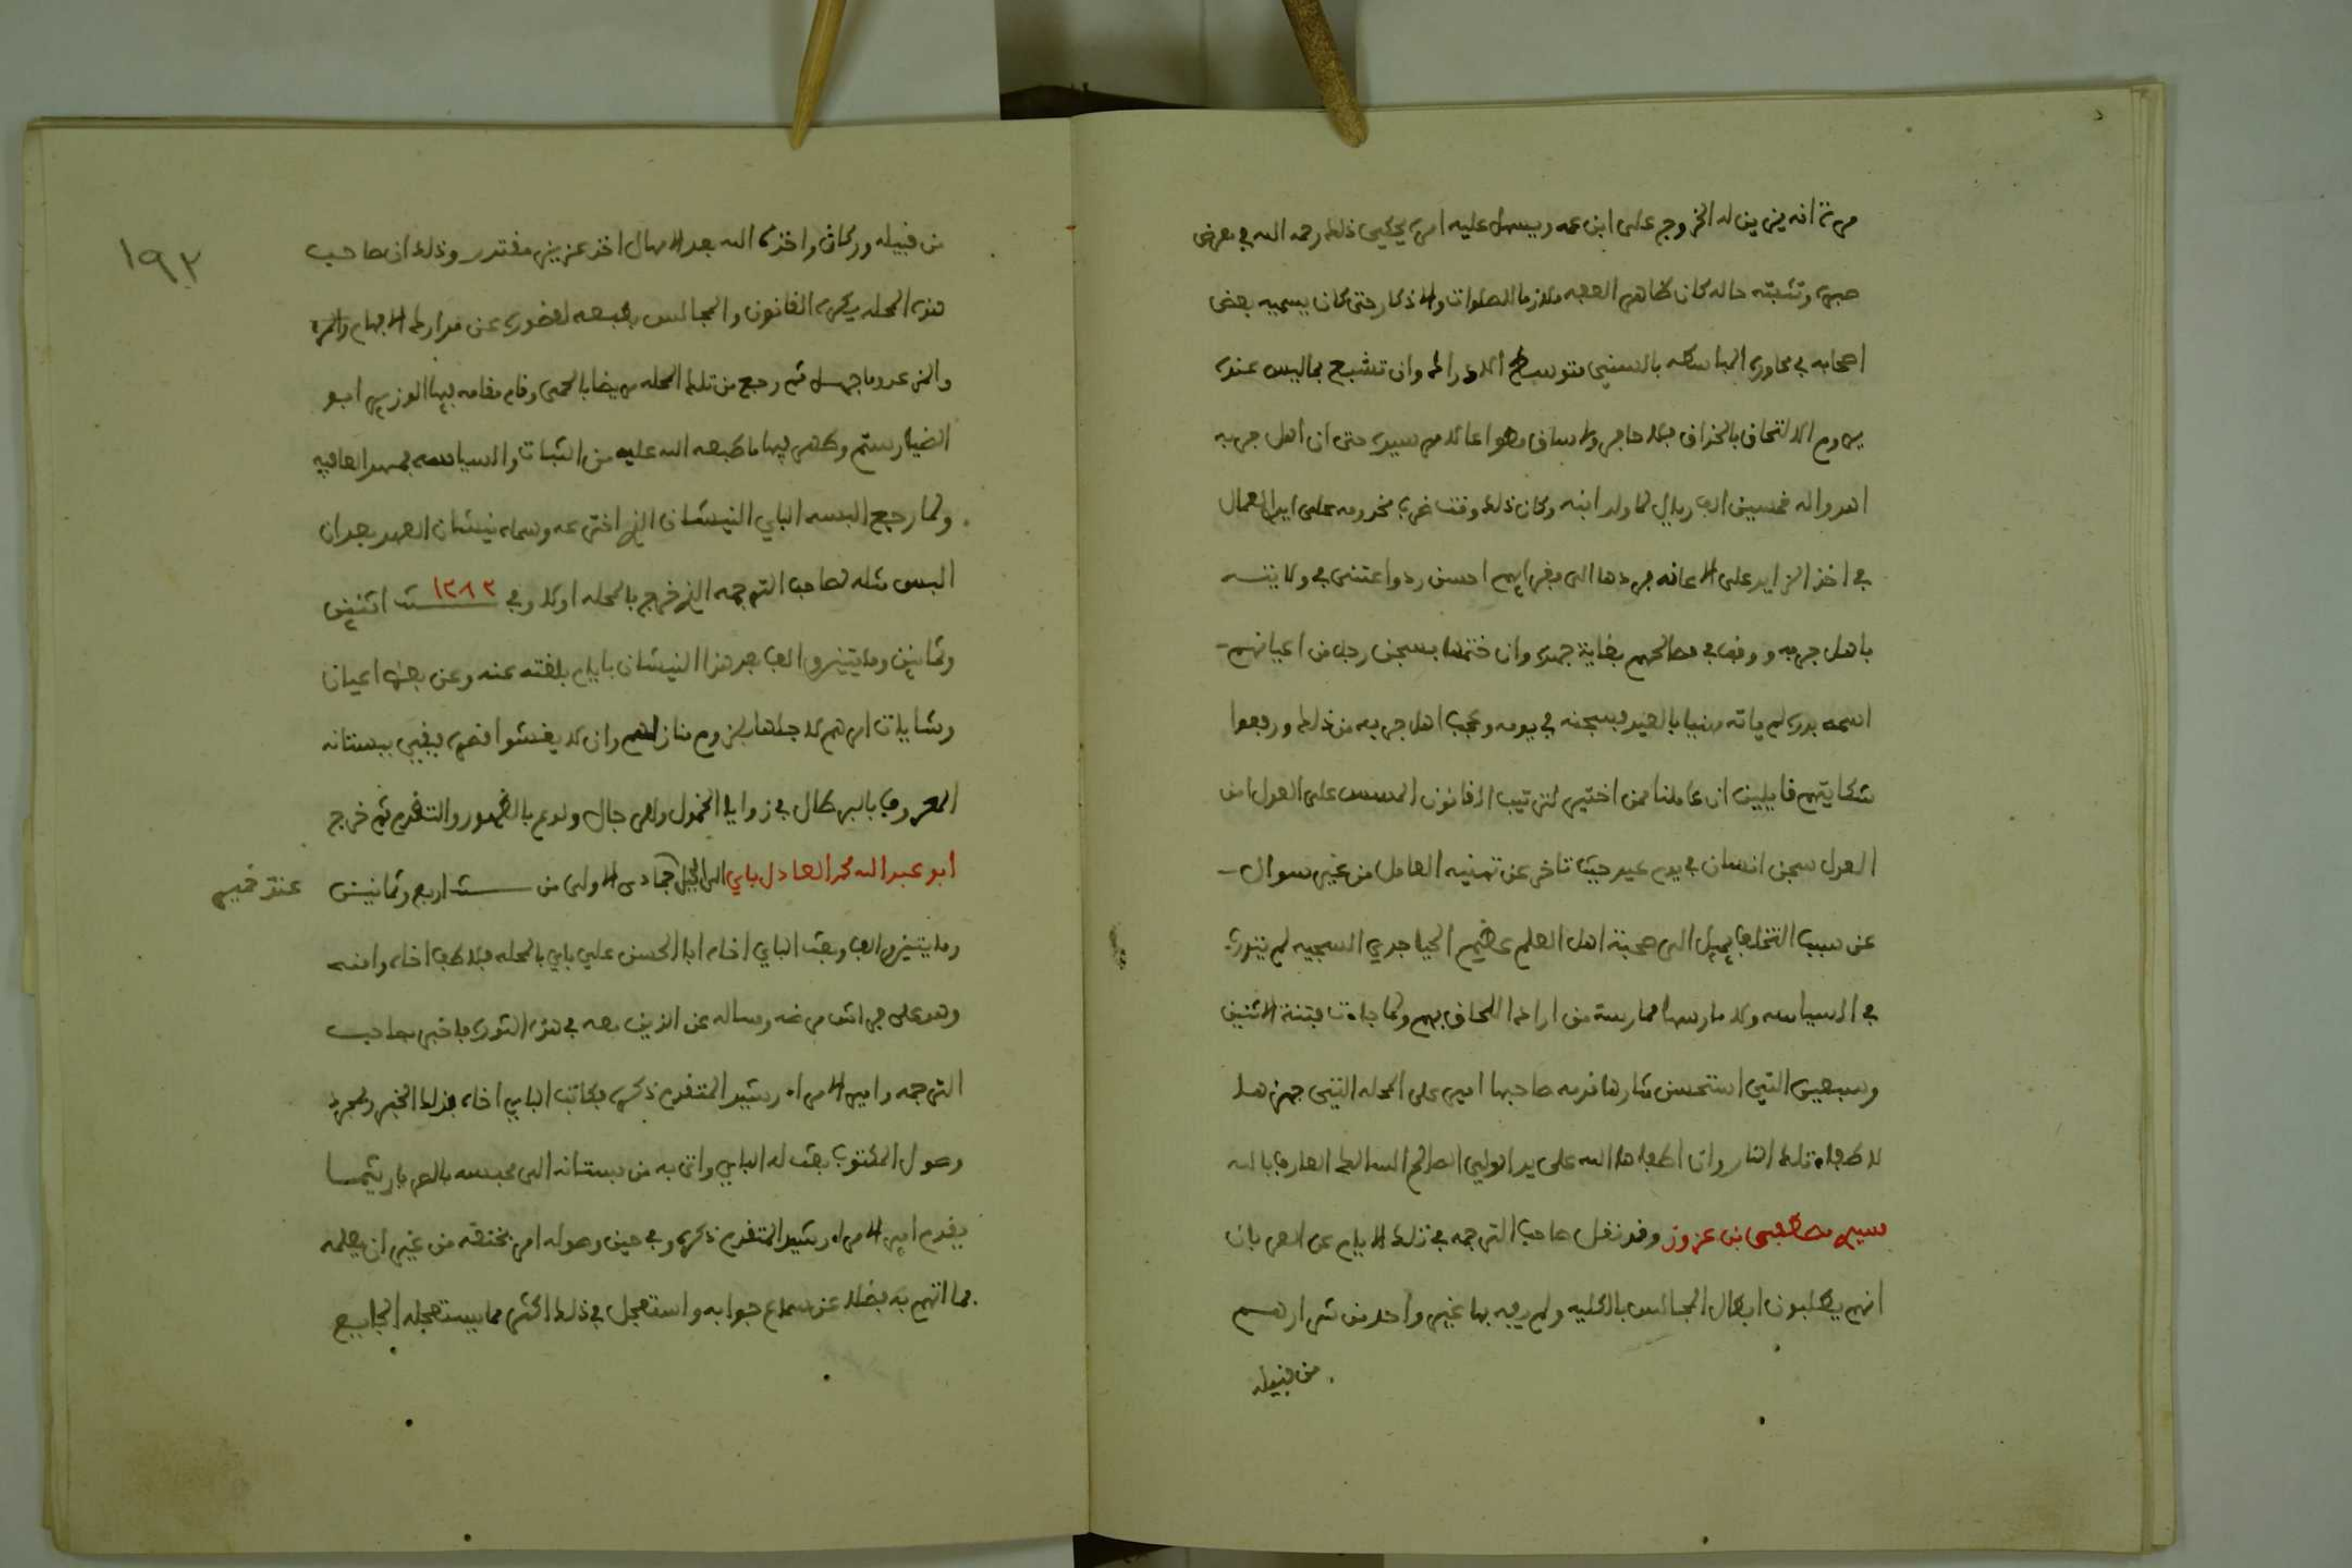 مرة انه يزين له الخروج على ابن عمه ويسهل عليه امره يحكي ذلك رحمه الله في معرض
صبره وتثبته حاله كان طاهر العفه ملازما للصلوات والاذكار حتى كان يسميه بعض
اصحابه في محاورة المباسطه بالسني متوسط الادراك وان تشبع بما ليس عنده
يروم الالتحاق بالحذاق بلا حاجر ولا ساق وهو اعا
اهدوا له خمسين الف ريال لما ولد ابنه وكان ذلك وقت غرة مخدومه على ايدي العمال
في اخذ الزايد على الاعانه فردها الى مغراهم احسن رد واعتنى في ولايته
باهل جربه ووقف في مصالحهم بغاية جهده وان ختمها بسجن رجل من اعيانهم
اسمه بدر لم ياته مهنيا بالعيد فسجنه في يومه وعجب اهل جربه من ذلك ورفعوا
شكايتهم قايلين ان عاملنا ممن اختير لترتيب القانون المسس على العدل امن
العدل سجن انسان في يوم عيد حيث تاخر عن تهنيه العامل من غير سوال
عن سبب التخلف يميل الى صحبة اهل العلم عظيم الحيا جدي السجيه لم يتدرب
في السياسه ولا مارسها ممارسة من اراد اللحاق بهم ولما جات فتنة الاثنين
وسبعين التي استحسن شارها قدمه صاحبها امير على المحله التي جهزها
لاطفاء تلك النار وان اطفاها الله على يد الولي الصالح السالك العارف بالله
سيدي مصطفى بن عزوز وقد نقل صاحب الترجمه في تلك الايام عن العربان
انهم يطلبون ابطال المجالس بالكليه ولم يفه بها غير واحد من شرارهم
من قبيله
١٩٢
من قبيله وركان واخذه الله بعد الامهال اخذ عزيز مقتدر وذلك ان صاحب
هذه المحله يكره القانون والمجالس بطبعه لقصوره عن مدارك الافهام
والمرء عدو ما جهل ثم رجع من تلك المحله مريضا بالحمى وقام مقامه فيها الوزير ابو
الضيا رستم وظهر فيها ما طبعه الله عليه من الثبات والسياسه فحمد العافيه
ولما رجع البسه الباي النيشان الذي اخترعه وسماه نيشان العهد بعد ان
البس مثله لصاحب الترجمه الذي خرج بالمحله اولا وفي ١٢٨٢ سنة اثنين
وثمانين ومايتين والف بعد هذا النيشان بايام بلغته عنه وعن بعض اعيان
وشايات امرهم لاجلها بلزوم منازلهم وان لا يغشوا قصره فبقي ببستانه
المعروف بالبرطال في زوايا الخمول والرجال ولوع بالظهور والتقدم ثم خرج
ابو عبد الله محمد العادل باي الى الجبل جمادى الاولى من سنة اربع وثمانين
ومايتين والف وبعث الباي اخاه ابا الحسن علي باي بالمحله فلاطف اخاه وامنه
وهو على فراش مرضه وساله عن الذين معه في هذه الثورة فاخبر بصاحب
الترجمه وامير الامراء رشيد المتقدم ذكره فكاتب الباي اخاه بذلك الخبر وبمجرد
وصول المكتوب بعث له الباي واتى به من بستانه الى محبسه بالصرايه ريثما
يقدم امير الامراء رشيد المتقدم ذكره وفي حين وصوله امر بخنقه من غير ان يعلمه
بما اتهم به فضلا عن سماع جوابه واستعجل في ذلك اكثر مما يستعجله الجايع